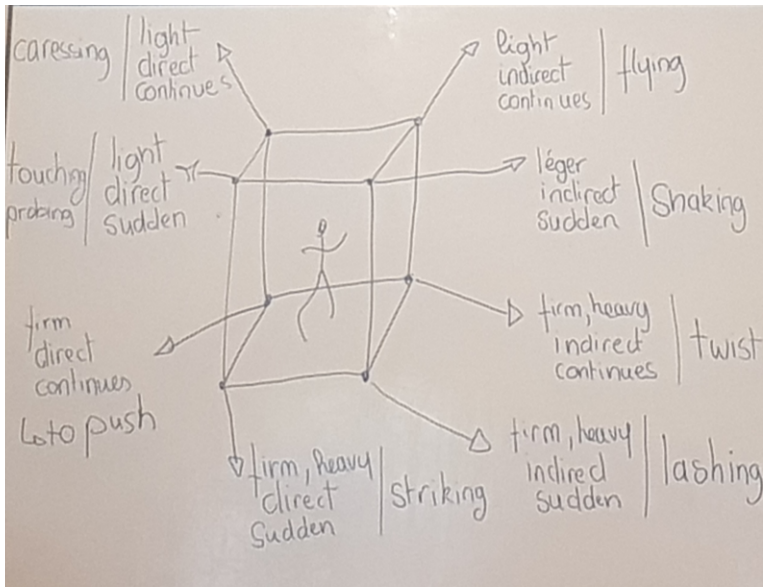 caressing
light
direct
continues
light
indirect
continues
flying
touching
probing
light
direct
sudden
léger
indirect
sudden
Shaking
firm
direct
continues
to push
firm, heavy
indirect
continues
twist
firm, heavy
direct
Sudden
striking
firm, heavy
indired
sudden
lashing